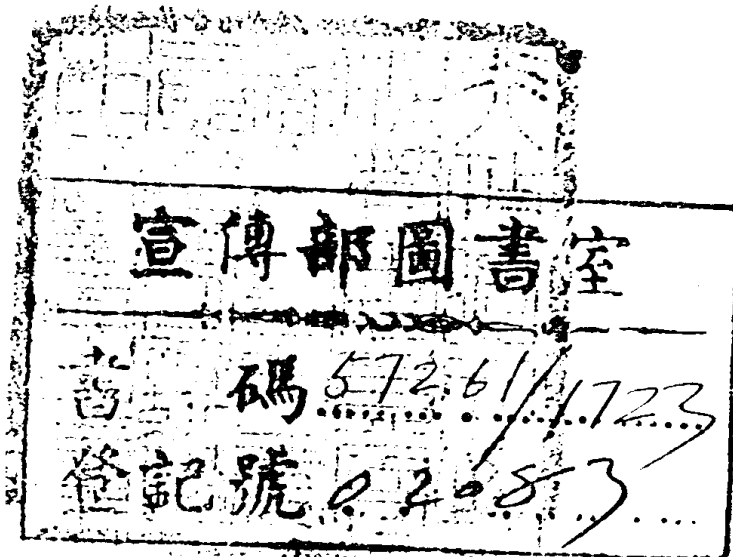 宣傳部圖書室
書碼 57261/1723
登記號 02053